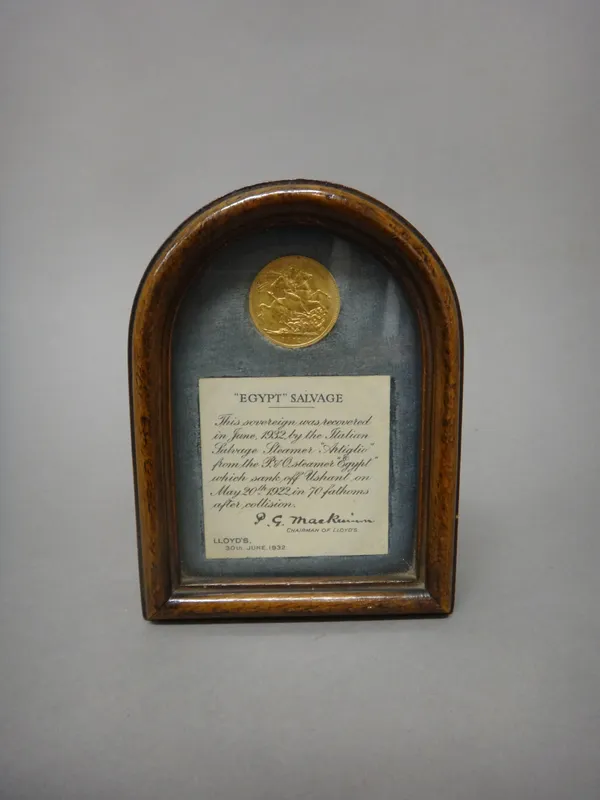 "EGYPT" SALVAGE
This sovereign was recovered
in June, 1932, by the Italian
Salvage Steamer "Artiglio"
from the P.&O. steamer "Egypt"
which sank off Ushant on
May 20th 1922, in 70 fathoms
after collision.
P. G. MacKinnon
CHAIRMAN OF LLOYD'S
LLOYD'S,
30TH JUNE, 1932